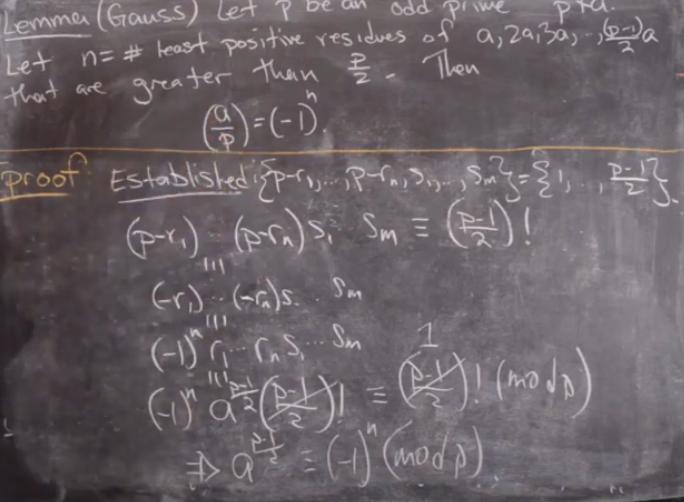 Lemma (Gauss) Let p be an odd prime p∤a.
Let n = # least positive residues of a, 2a, 3a, ..., (p-1)/2 a
that are greater than p/2. Then
(a/p) = (-1)^n.
proof Established: {p-r₁, ..., p-rₙ, s₁, ..., sₘ} = {1, ..., (p-1)/2}.
(p-r₁) ... (p-rₙ) s₁ sₘ ≡ ((p-1)/2)!
≡
(-r₁) ... (-rₙ) s ... sₘ
≡
(-1)^n r₁ ... rₙ s₁ ... sₘ 1
≡
(-1)^n a^((p-1)/2) ((p-1)/2)! ≡ ((p-1)/2)! (mod p)
⇒ a^((p-1)/2) ≡ (-1)^n (mod p)